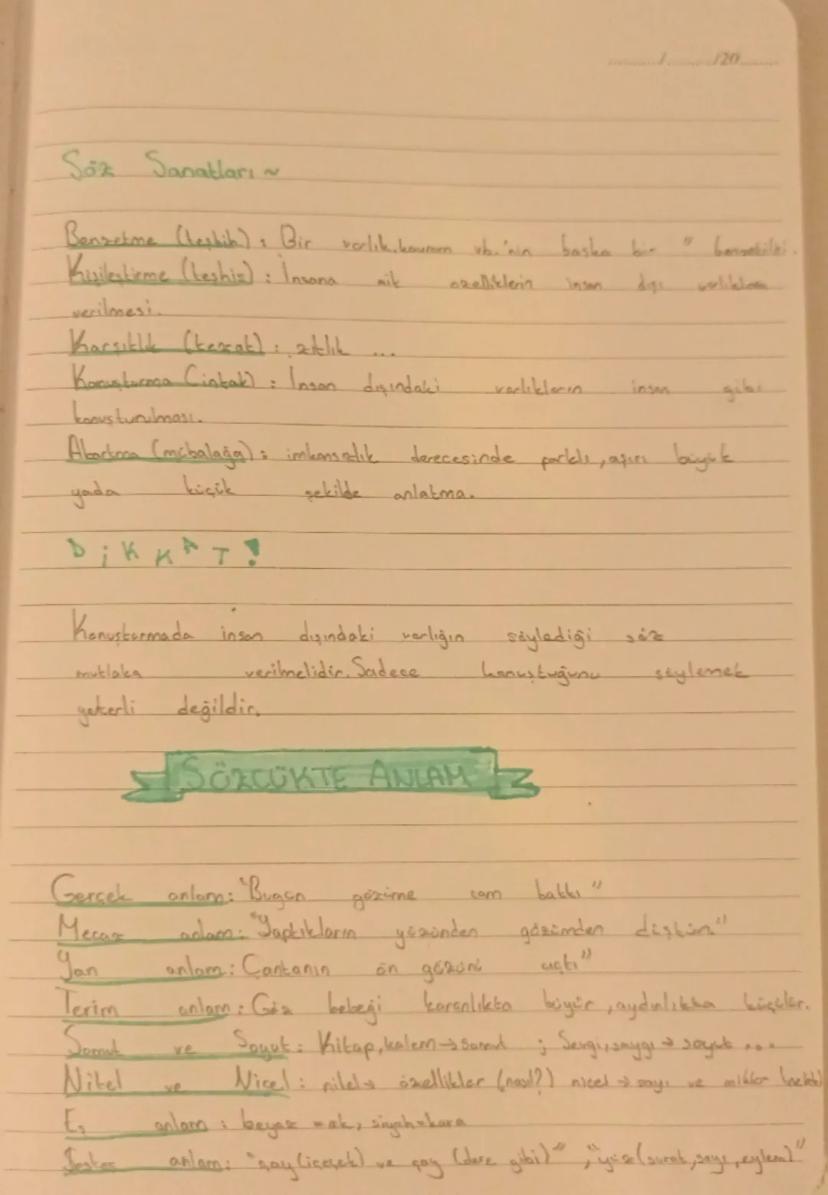 / /20
Söz Sanatları ~
Benzetme (teşbih) : Bir varlık, kavram vb.'nin başka bir "
Kişileştirme (teşhis) : İnsana ait özelliklerin insan dışı varlıklara
verilmesi.
Karşıtlık (tezat) : zıtlık ...
Konuşturma (intak) : İnsan dışındaki varlıkların insan gibi
konuşturulması.
Abartma (mübalağa) : imkansızlık derecesinde farklı, aşırı büyük
yada küçük şekilde anlatma.
DİKKAT!
Konuşturmada insan dışındaki varlığın söylediği söz
mutlaka verilmelidir. Sadece konuştuğunu söylemek
yeterli değildir.
SÖZCÜKTE ANLAM
Gerçek anlam: "Bugün gözüme cam battı"
Mecaz anlam: "Yaptıkların yüzünden gözümden düştün"
Yan anlam: Çantanın ön gözünü açtı"
Terim anlam: Göz bebeği karanlıkta büyür, aydınlıkta küçülür.
Somut ve Soyut: Kitap, kalem → somut ; Sevgi, saygı → soyut ...
Nitel ve Nicel: nitel → özellikler (nasıl?) nicel → sayı ve miktar
Eş anlam : beyaz = ak, siyah = kara
Sesteş anlam: "çay (içecek) ve çay (dere gibi)" , "yüz (surat, sayı, eylem)"